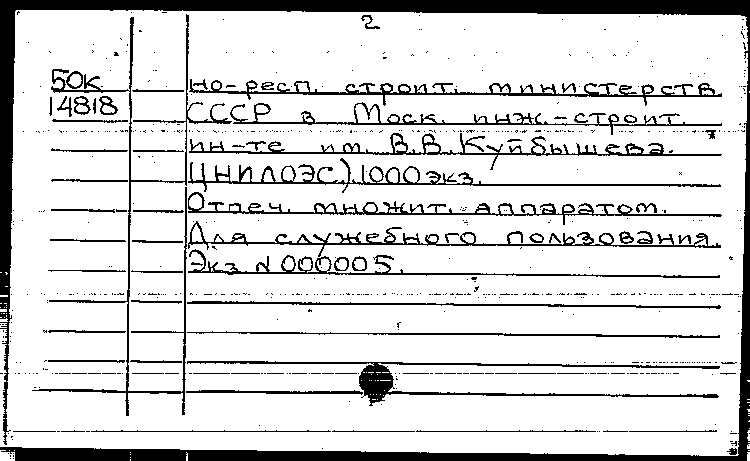 2
50К
14818
но-респ. строит. министерств
СССР в Моск. инж.-строит.
ин-те им. В.В. Куйбышева.
ЦНИЛОЭС). 1000 экз.
Отпеч. множит. аппаратом.
Для служебного пользования.
Экз. N 000005.